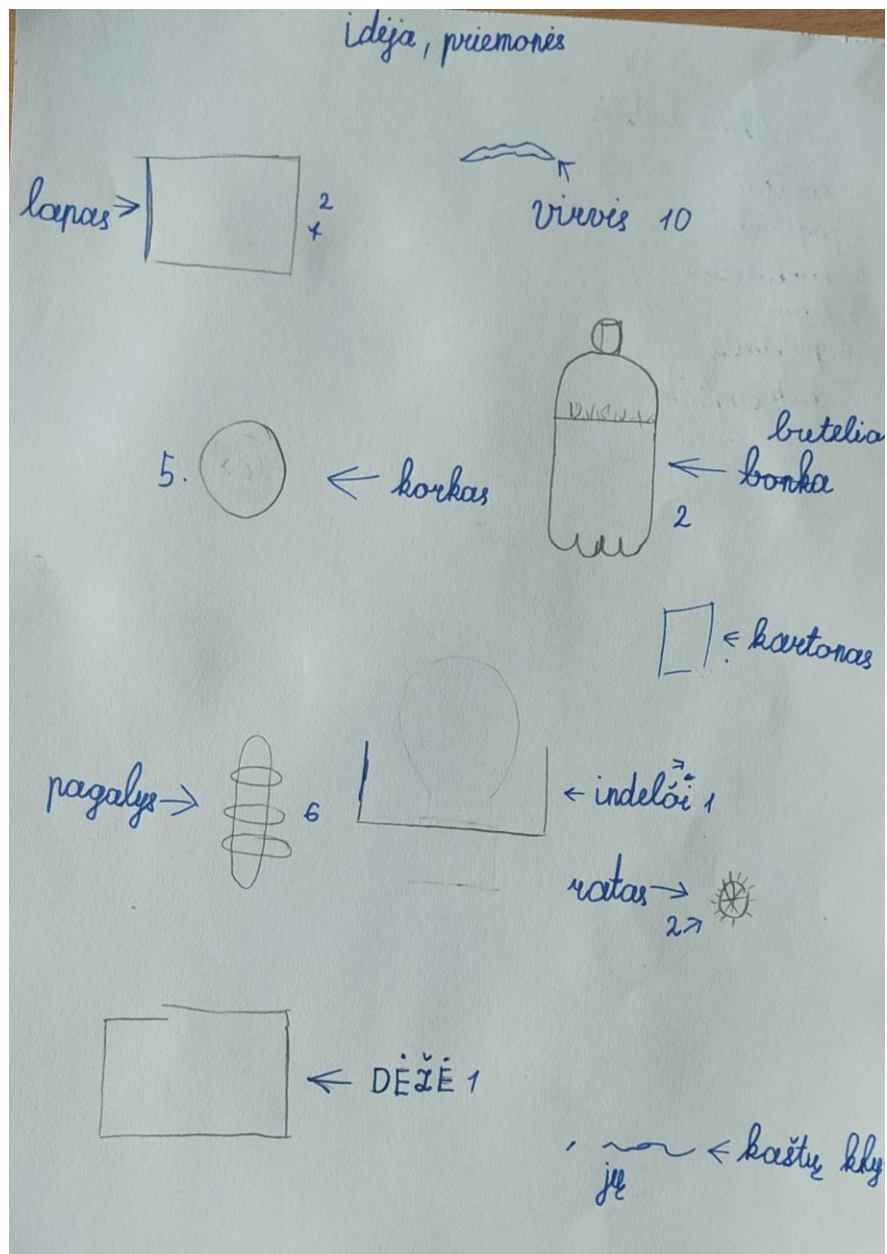 idėja, priemonės
lapas 2
virvis 10
5. korkas
butelio
bonka
2
kartonas
pagalys 6
indelői 1
ratas
2
DĖŽĖ 1
kaštų kly
jų